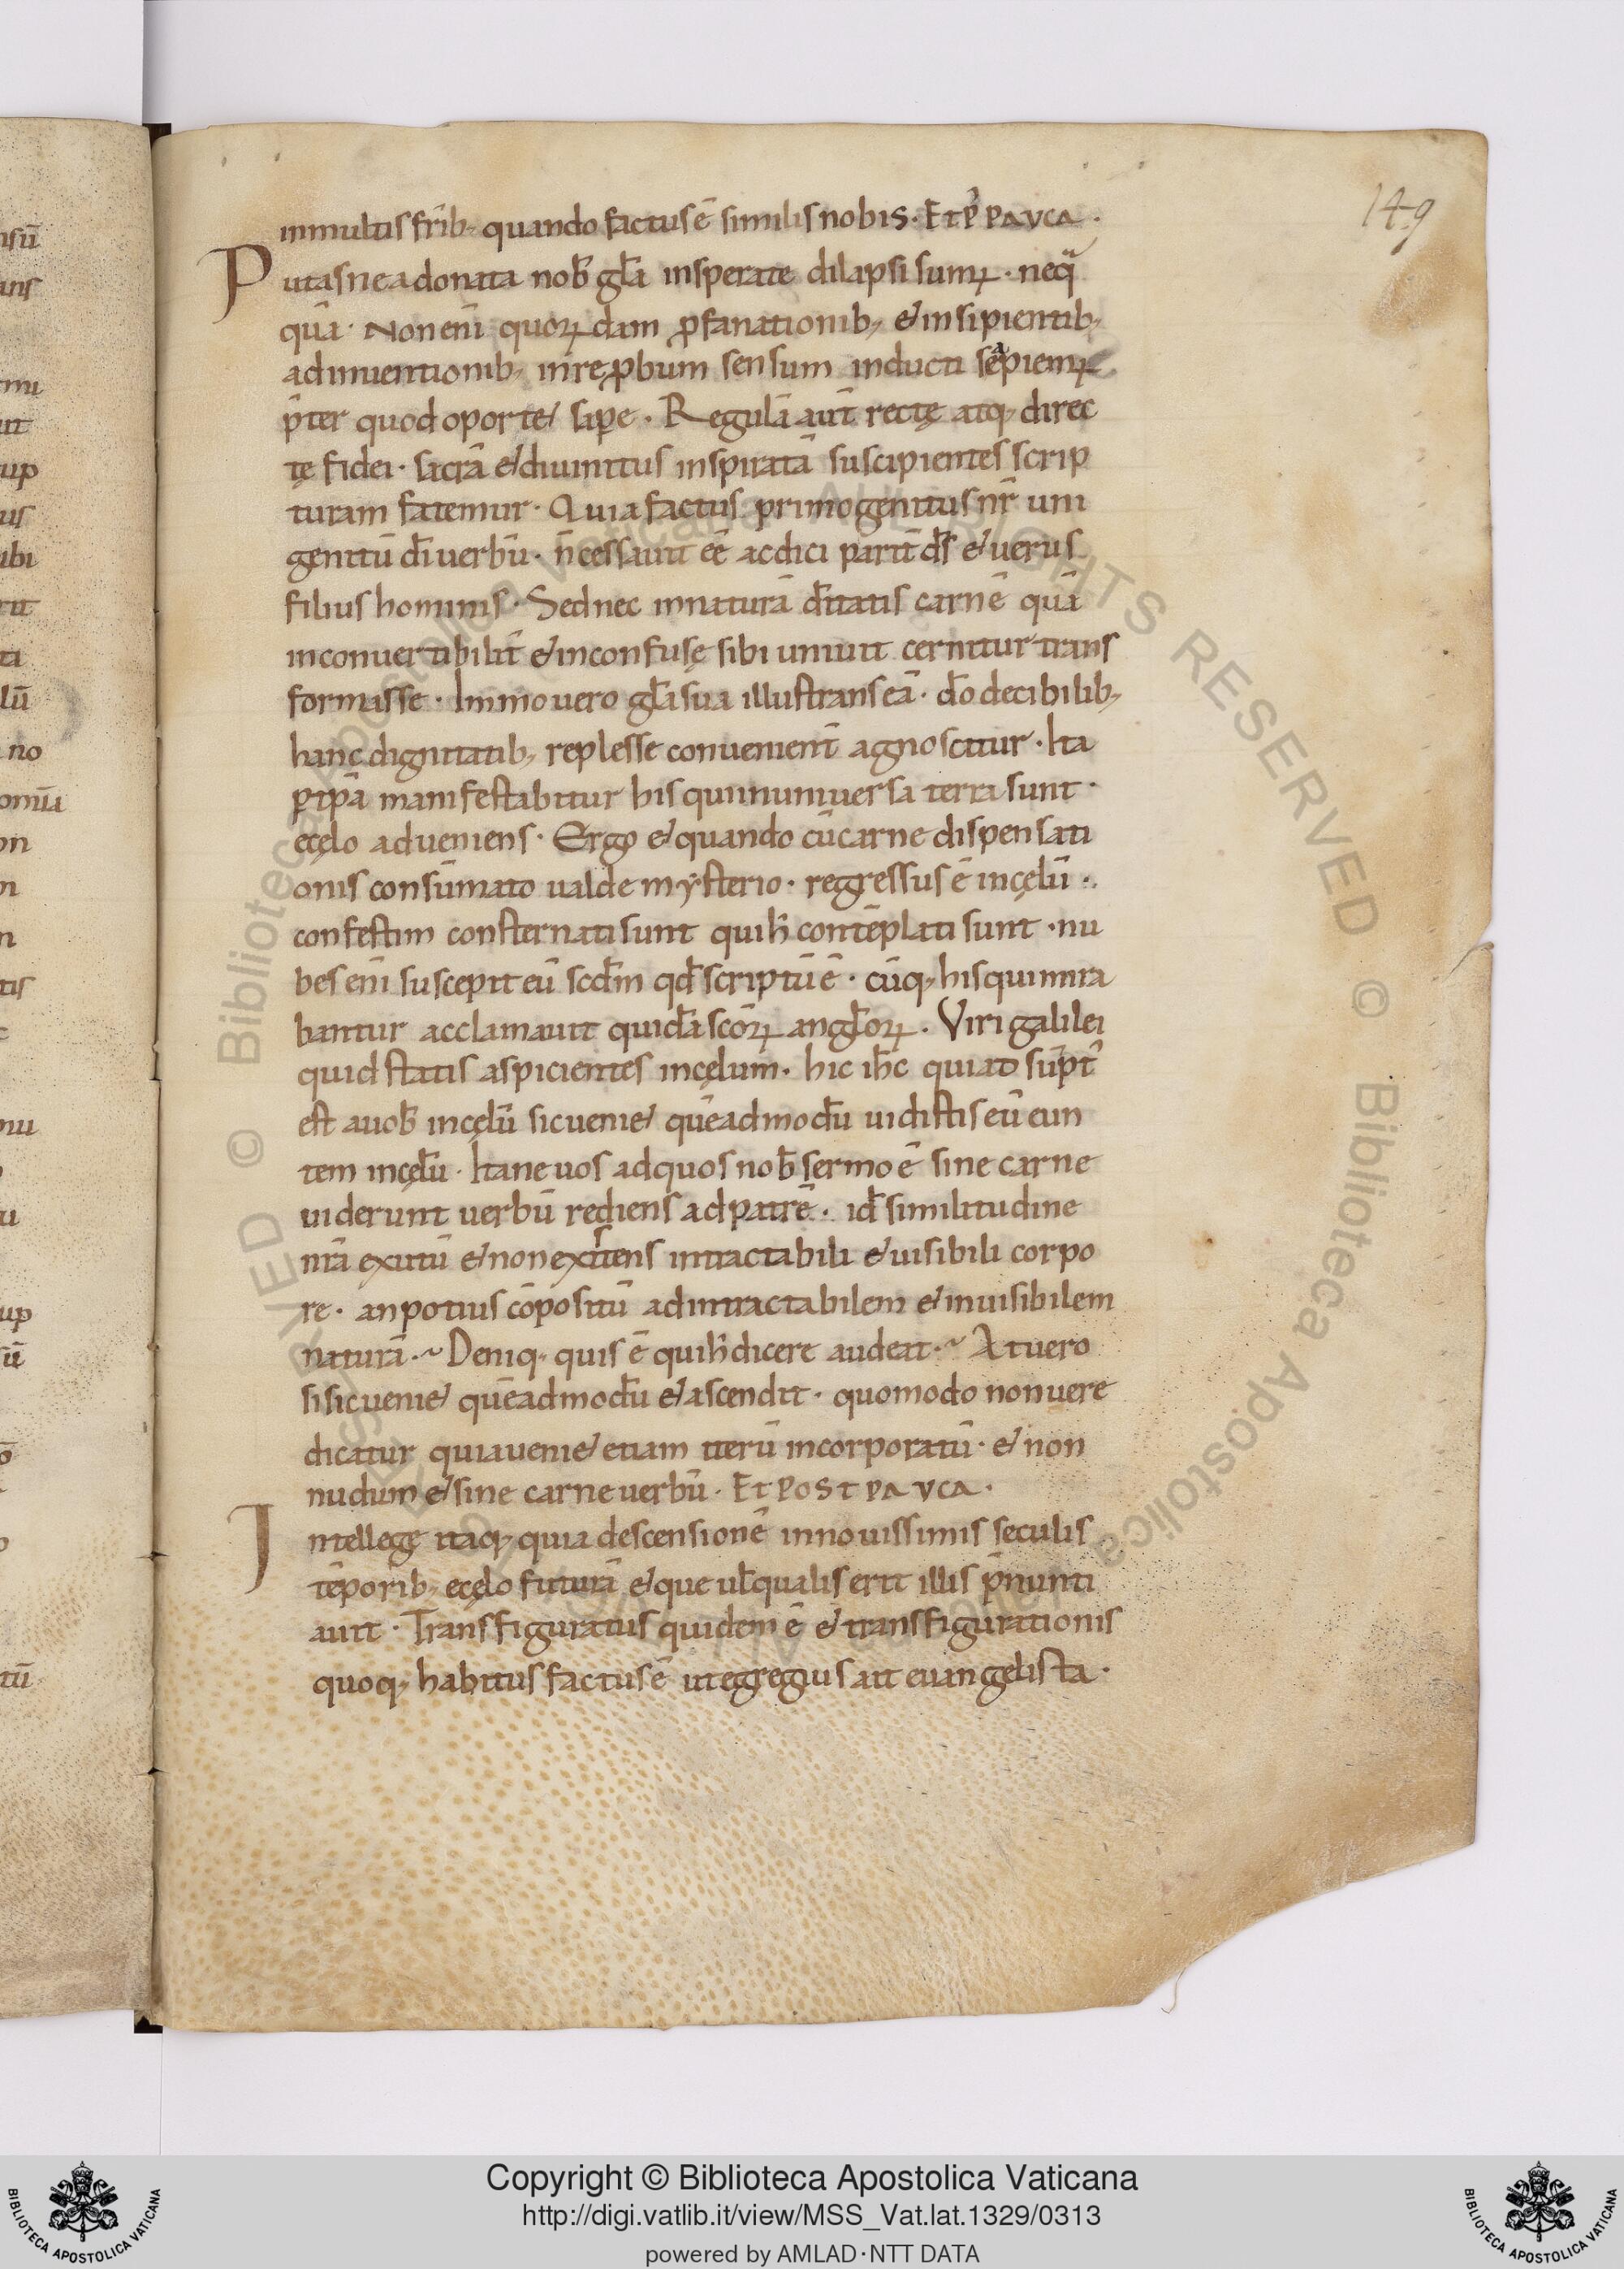 149
inmultis frīb; quando factus ē similis nobis. Et P̄ PAVCA.
Putasne adonata nob̄ gl̄a insperate dilapsi sumꝰ. neq̄
quā. Non enī quorꝝdam ꝓfanationib; & insipientib;
adinuentionib; inreꝓbum sensum inducti sepiemꝰ
p̄ter quod oporte& sape. Regulā aūt rectę atq; direc
tę fidei. sacrā & diuinitus inspiratā suscipientes scrip
turam fatemur. Quia factus primogenitus nr̄ uni
genitū dī uerbū. n̄ cessauit eē ac dici parit̄ dς̄ & uerus
filius hominis. Sed nec innaturā dr̄tatis carnē quā
inconuertibilit̄ & inconfusę sibi uniuit cernitur trans
formasse. Immo uero gl̄a sua illustrans eā. dō decibilib;
hanc dignitatib; replesse conuenient̄ agnoscitur. Ita
ꝑ ip̄ā manifestabitur his qui in uniuersa terra sunt.
ecęlo adueniens. Ergo & quando cū carne dispensati
onis consūmato ualde mysterio. regressus ē in cęlū.
confestim consternati sunt qui h̄ contēplati sunt. nu
bes enī suscepit eū scd̄m qd̄ scriptū ē. cūq; his qui mira
bantur acclamauit quidā scōꝝ angl̄oꝝ. Viri galilei
quid statis aspicientes in cęlum. hic ih̄c qui a uō sūpt̄
est a uob̄ in cęlū sic uenie& quēadmodū uidistis eū eun
tem in cęlū. Ita ne uos ad quos nob̄ sermo ē sine carne
uiderunt uerbū rediens ad patrē. id̄ similitudine
nrā exutū & non existens intractabili & uisibili corpo
re. an potius cōpositū ad intractabilem & inuisibilem
naturā.~ Deniq; quis ē qui h̄ dicere audeat.~ At uero
si sic uenie& quēadmodū & ascendit. quomodo non uere
dicatur quia uenie& etiam iterū incorporatū. & non
nudum & sine carne uerbū. Et POST PAVCA.
Intellege itaq; quia descensionē in nouissimis seculis
tēporib; ecęlo futurā & que ul̄ qualis erit illis p̄nunti
auit. Transfiguratus quidem ē & transfigurationis
quoq; habitus factus ē ut egregius ait euangelista.
Copyright © Biblioteca Apostolica Vaticana
http://digi.vatlib.it/view/MSS_Vat.lat.1329/0313
powered by AMLAD·NTT DATA
BIBLIOTECA APOSTOLICA VATICANA
BIBLIOTECA APOSTOLICA VATICANA